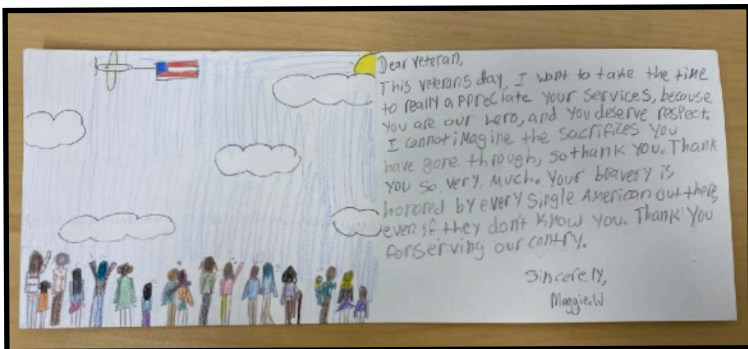 Dear Veteran,
This veterans day, I want to take the time
to really appreciate your services, because
you are our hero, and you deserve respect.
I cannot imagine the sacrifices you
have gone through, so thank you. Thank
you so very, much. Your bravery is
honored by every single American out there,
even if they don't know you. Thank you
for serving our contry.
Sincerely,
Maggie.W